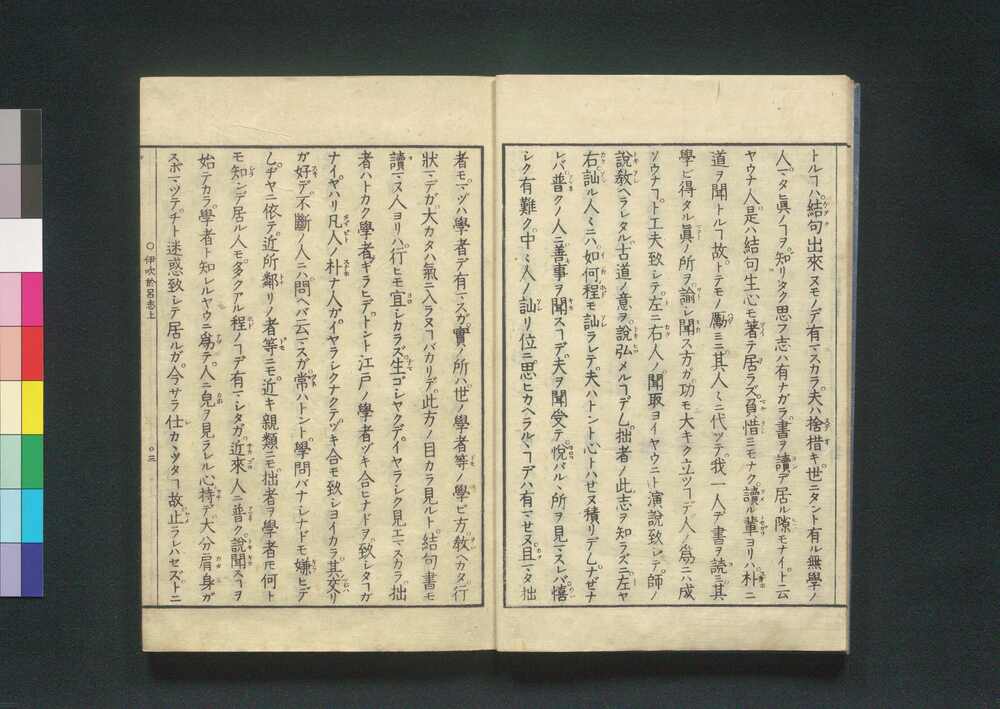 トルヿハ結句出來ヌモノデ有マスカラ夫ハ捨措キ世ニタント有ル無學ノ
人マタ眞ノヿヲ知リタク思フ志ハ有ナガラ書ヲ讀デ居ル隙モナイト云
ヤウナ人是ハ結句生心モ著テ居ラズ負惜ミモナク讀ル輩ヨリハ朴ニ
道ヲ聞トルヿ故トテモノ勵ミニ其人〻ニ代ツテ我一人デ書ヲ読ミ其
學ビ得タル眞ノ所ヲ諭シ聞ス方ガ功モ大キク立ツヿデ人ノ爲ニハ成
ソウナヿト工夫致シテ左ニ右人ノ聞取ヨイヤウニト演說致シデ師ノ
說敎ヘラレタル古道ノ意ヲ說弘メルヿデム拙者ノ此志ヲ知ラズニ左ヤ
右訕ル人〻ニハ如何程モ訕ラレテ夫ハトント心トハせヌ積リデムナゼナ
レバ普クノ人ニ善事ヲ聞スヿデ夫ヲ聞受テ悅バルヽ所ヲ見マスレバ僖
シク有難ク中〻人ノ訕リ位ニ思ヒカヘラルヽヿデハ有マせヌ且マタ拙
者モマヅハ學者デ有マスガ實ノ所ハ世ノ學者等ノ學ビ方敎ヘカタ行
狀マデガ大カタハ氣ニ入ラヌヿバカリデ此方ノ目カラ見ルト結句書モ
讀マヌ人ヨリハ行ヒモ宜シカラズ生ゴシヤクデイヤラシク見エマスカラ拙
者ハトカク學者ギラヒデトント江戸ノ學者ヅキ合ヒナドヲ致シタヿガ
ナイヤハリ凡人ノ朴ナ人ガイヤラシクナクテヅキ合モ致シヨイカラ其交リ
ガ好デ不斷ノ人ニハ問ヘバ云マスガ常ハトント學問バナシナドモ嫌ヒデ
ムヂヤニ依テ近所鄰リノ者等ニモ近キ親類ニモ拙者ヲ學者𪜈何ト
モ知ンデ居ル人モ多クアル程ノヿデ有マシタガ近來人ニ普ク說聞スヿヲ
始テカラ學者ト知レルヤウニ爲テ人ニ皃ヲ見ラレル心持デ大分肩身ガ
スボマツテチト迷惑致シテ居ルガ今サラ仕カヽツタヿ故止ラレハセズトニ
○伊吹於呂志上
○三